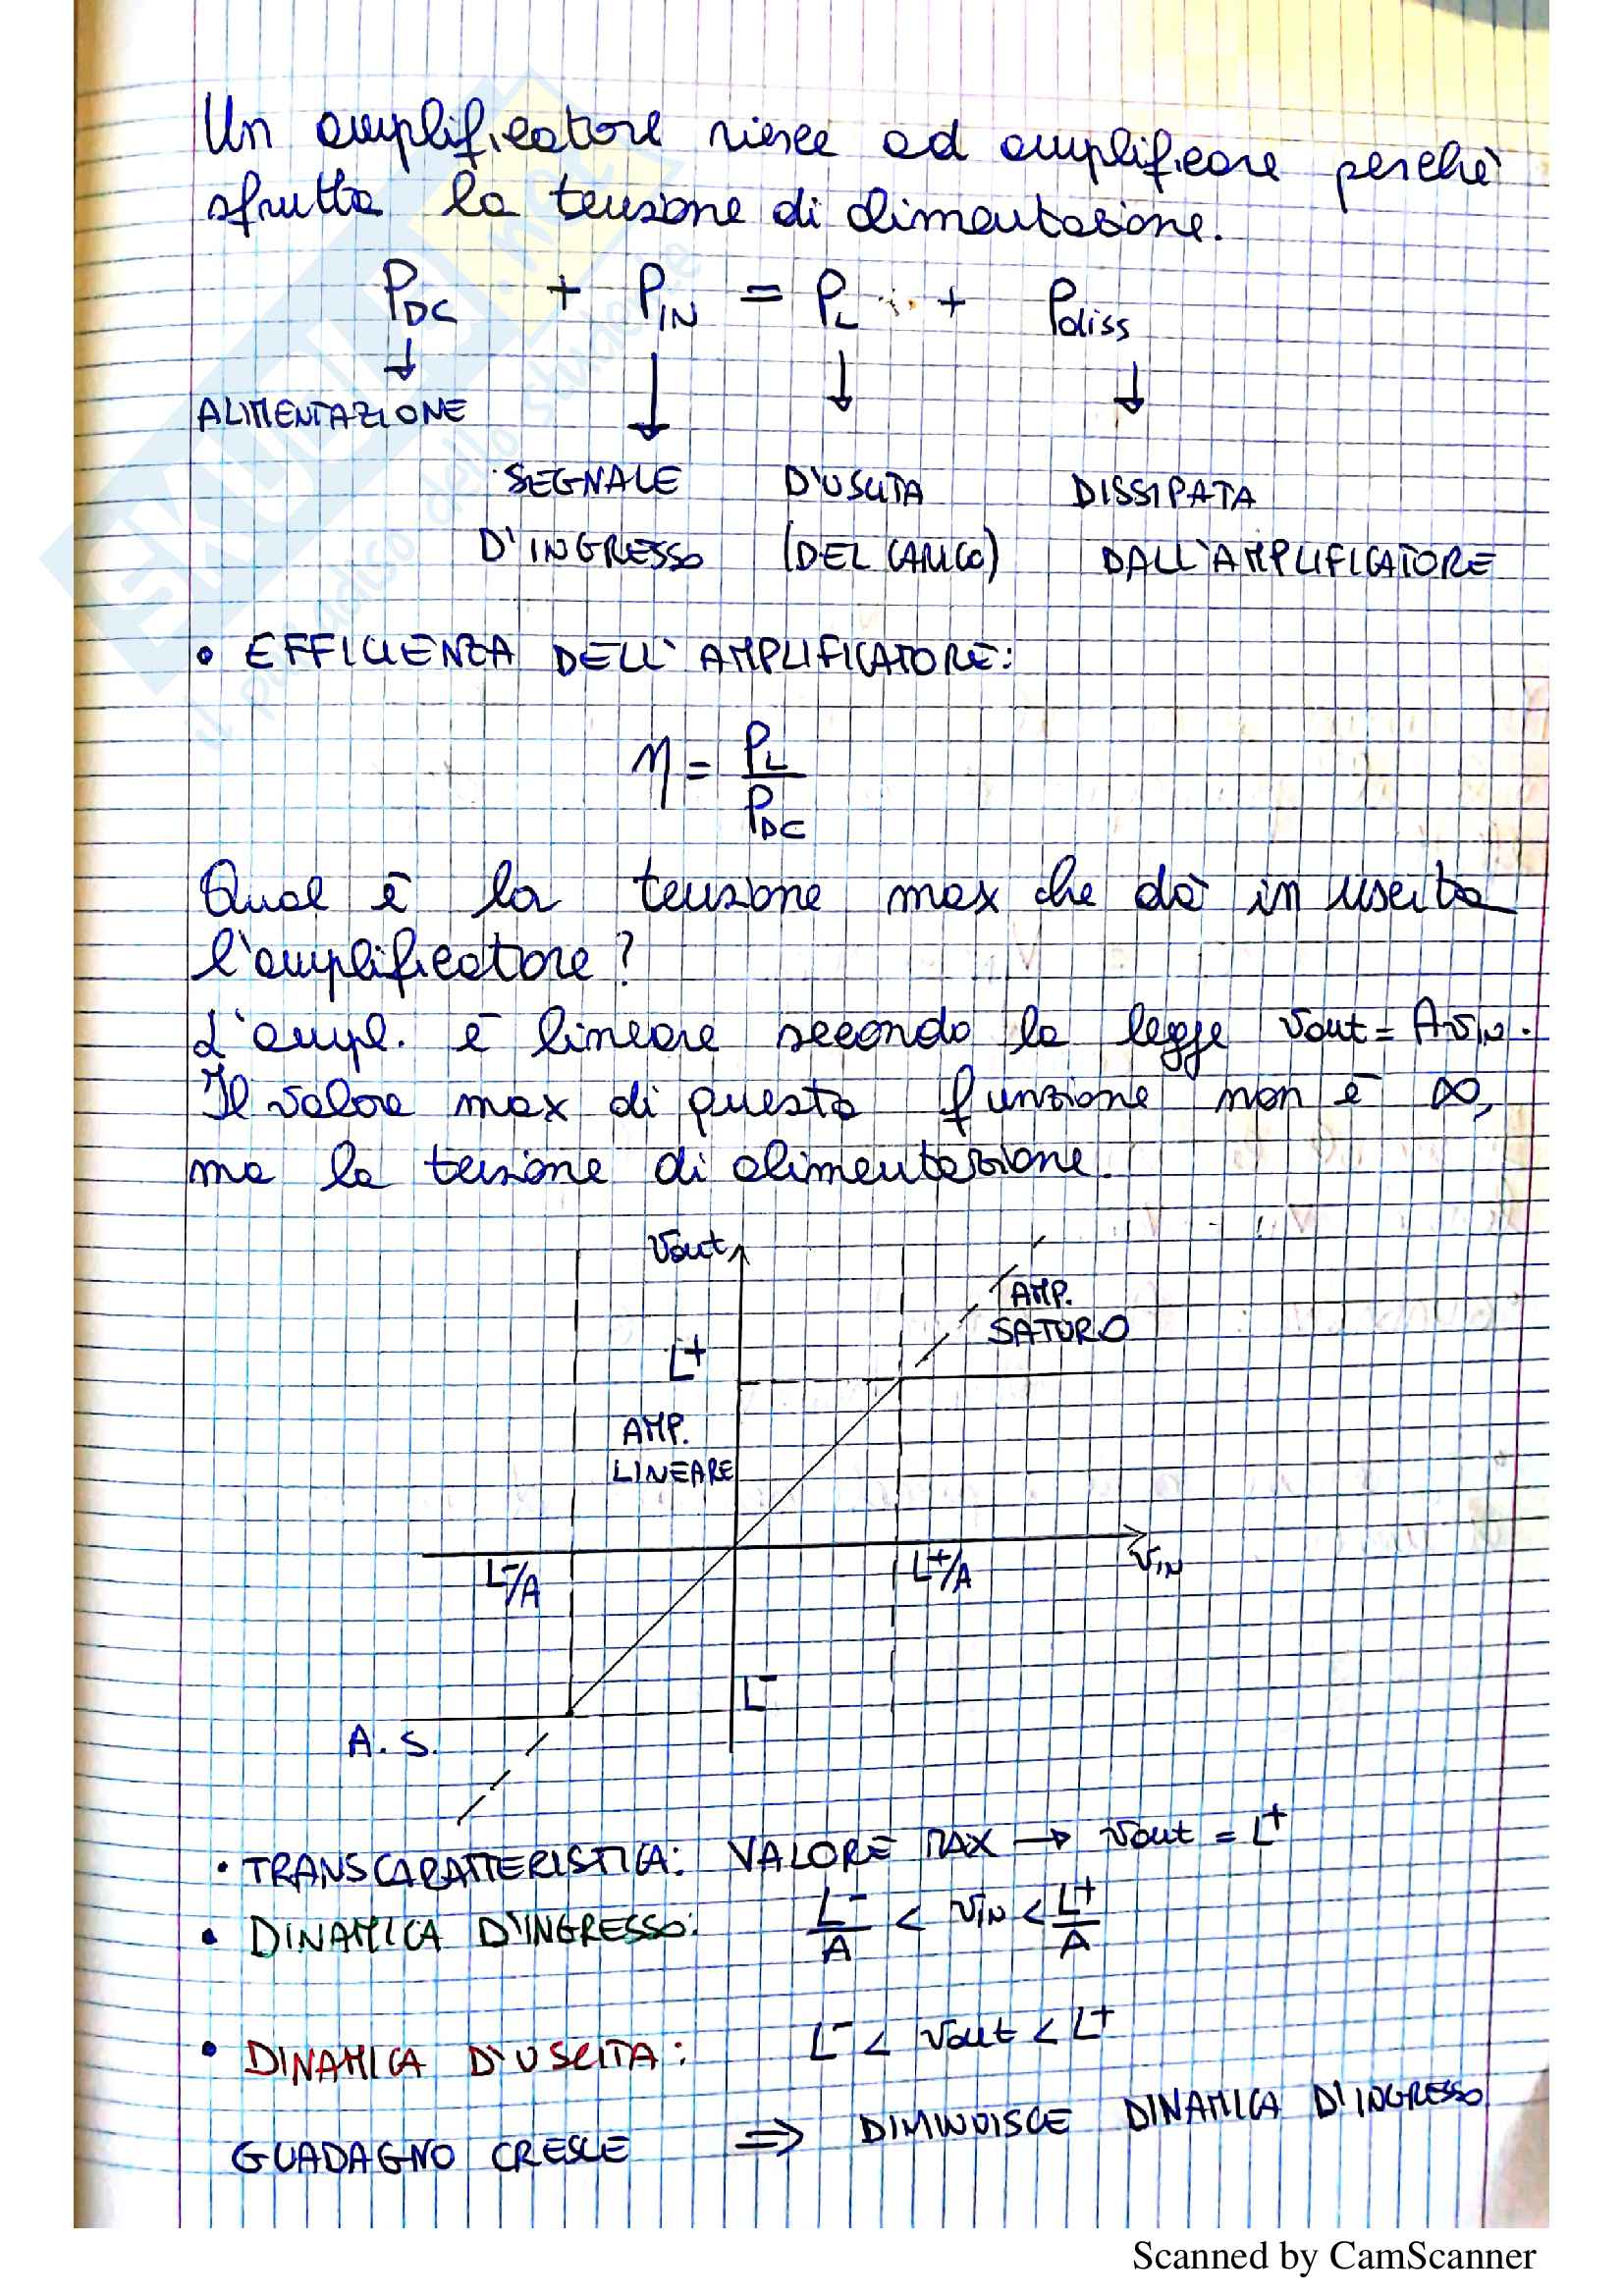 Un amplificatore riesce ad amplificare perchè
sfrutta la tensione di alimentazione.
P_DC + P_IN = P_L + P_diss
↓ ↓ ↓ ↓
ALIMENTAZIONE
SEGNALE D'USCITA DISSIPATA
D'INGRESSO (DEL CARICO) DALL'AMPLIFICATORE
• EFFICIENZA DELL'AMPLIFICATORE:
η = P_L / P_DC
Qual è la tensione max che dà in uscita
l'amplificatore?
L'ampl. è lineare secondo la legge Vout = A·V_IN.
Il valore max di questa funzione non è ∞,
ma la tensione di alimentazione.
Vout
AMP.
SATURO
L⁺
AMP.
LINEARE
L⁻/A
L⁺/A
V_IN
L⁻
A. S.
• TRANSCARATTERISTICA: VALORE MAX → Vout = L⁺
• DINAMICA D'INGRESSO: L⁻/A < V_IN < L⁺/A
• DINAMICA D'USCITA: L⁻ < Vout < L⁺
GUADAGNO CRESCE ⇒ DIMINUISCE DINAMICA D'INGRESSO
SKUOLA.net
il paradiso dello studente
Scanned by CamScanner